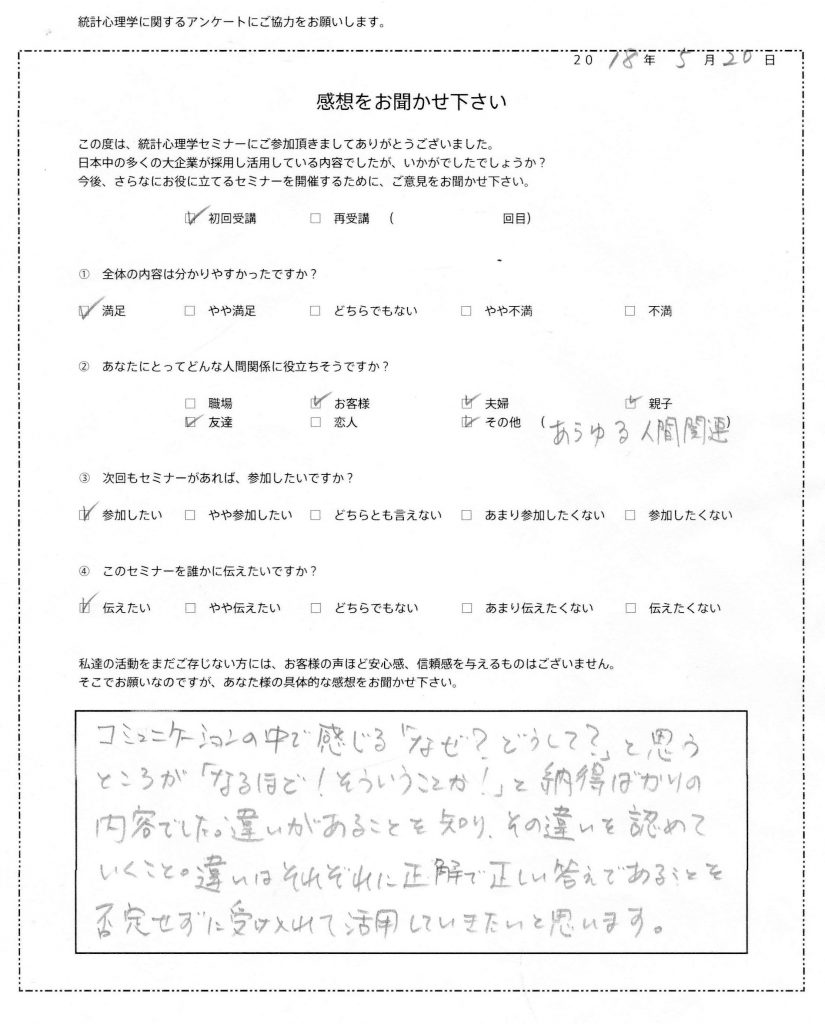 統計心理学に関するアンケートにご協力をお願いします。
2018年 5月20日
感想をお聞かせ下さい
この度は、統計心理学セミナーにご参加頂きましてありがとうございました。
日本中の多くの大企業が採用し活用している内容でしたが、いかがでしたでしょうか？
今後、さらなにお役に立てるセミナーを開催するために、ご意見をお聞かせ下さい。
☑ 初回受講 □ 再受講 （ 回目）
① 全体の内容は分かりやすかったですか？
☑ 満足 □ やや満足 □ どちらでもない □ やや不満 □ 不満
② あなたにとってどんな人間関係に役立ちそうですか？
□ 職場 ☑ お客様 ☑ 夫婦 ☑ 親子
☑ 友達 □ 恋人 ☑ その他 （あらゆる人間関連）
③ 次回もセミナーがあれば、参加したいですか？
☑ 参加したい □ やや参加したい □ どちらとも言えない □ あまり参加したくない □ 参加したくない
④ このセミナーを誰かに伝えたいですか？
☑ 伝えたい □ やや伝えたい □ どちらでもない □ あまり伝えたくない □ 伝えたくない
私達の活動をまだご存じない方には、お客様の声ほど安心感、信頼感を与えるものはございません。
そこでお願いなのですが、あなた様の具体的な感想をお聞かせ下さい。
コミュニケーションの中で感じる「なぜ？どうして？」と思う
ところが「なるほど！そういうことか！」と納得ばかりの
内容でした。違いがあることを知り、その違いを認めて
いくこと。違いはそれぞれに正解で正しい答えであることを
否定せずに受け入れて活用していきたいと思います。